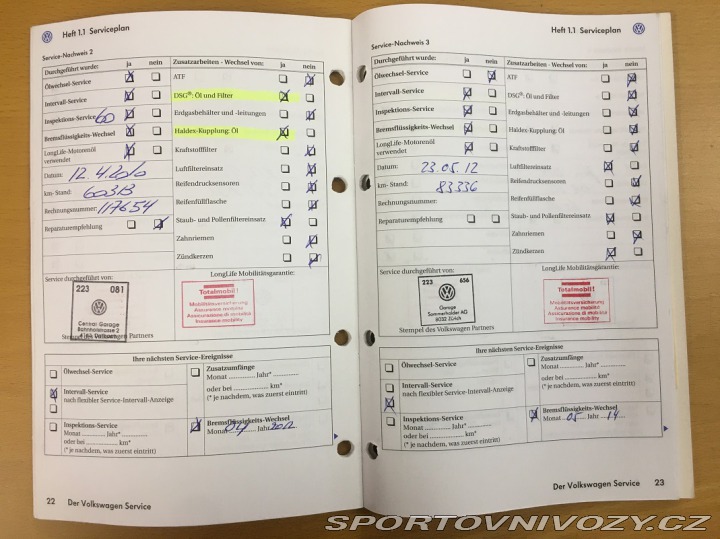 Heft 1.1 Serviceplan
Service-Nachweis 2
Durchgeführt wurde: ja nein
Ölwechsel-Service
Intervall-Service
Inspektions-Service 60
Bremsflüssigkeits-Wechsel
LongLife-Motorenöl
verwendet
Datum: 12.4.2010
km-Stand: 60313
Rechnungsnummer: 117654
Reparaturempfehlung
Zusatzarbeiten - Wechsel von: ja nein
ATF
DSG®: Öl und Filter
Erdgasbehälter und -leitungen
Haldex-Kupplung: Öl
Kraftstofffilter
Luftfiltereinsatz
Reifendrucksensoren
Reifenfüllflasche
Staub- und Pollenfiltereinsatz
Zahnriemen
Zündkerzen
Service durchgeführt von:
223 081
Garage
Bahnhofstrasse 2
Stempel des Volkswagen Partners
LongLife Mobilitätsgarantie:
Totalmobil!
Mobilitätsversicherung
Assurance mobilité
Assicurazione di mobilità
Insurance mobility
Ihre nächsten Service-Ereignisse
Ölwechsel-Service
Intervall-Service
nach flexibler Service-Intervall-Anzeige
Inspektions-Service
Monat .............. Jahr* ..............
oder bei .............. km*
(* je nachdem, was zuerst eintritt)
Zusatzumfänge
Monat .............. Jahr* ..............
oder bei .............. km*
(* je nachdem, was zuerst eintritt)
Bremsflüssigkeits-Wechsel
Monat 04 Jahr 2012
22 Der Volkswagen Service
Heft 1.1 Serviceplan
Service-Nachweis 3
Durchgeführt wurde: ja nein
Ölwechsel-Service
Intervall-Service
Inspektions-Service
Bremsflüssigkeits-Wechsel
LongLife-Motorenöl
verwendet
Datum: 23.05.12
km-Stand: 83336
Rechnungsnummer:
Reparaturempfehlung
Zusatzarbeiten - Wechsel von: ja nein
ATF
DSG®: Öl und Filter
Erdgasbehälter und -leitungen
Haldex-Kupplung: Öl
Kraftstofffilter
Luftfiltereinsatz
Reifendrucksensoren
Reifenfüllflasche
Staub- und Pollenfiltereinsatz
Zahnriemen
Zündkerzen
Service durchgeführt von:
223 656
Garage
Sommerhalder AG
8032 Zürich
Stempel des Volkswagen Partners
LongLife Mobilitätsgarantie:
Totalmobil!
Mobilitätsversicherung
Assurance mobilité
Assicurazione di mobilità
Insurance mobility
Ihre nächsten Service-Ereignisse
Ölwechsel-Service
Intervall-Service
nach flexibler Service-Intervall-Anzeige
Inspektions-Service
Monat .............. Jahr* ..............
oder bei .............. km*
(* je nachdem, was zuerst eintritt)
Zusatzumfänge
Monat .............. Jahr* ..............
oder bei .............. km*
(* je nachdem, was zuerst eintritt)
Bremsflüssigkeits-Wechsel
Monat 05 Jahr 14
Der Volkswagen Service 23
SPORTOVNIVOZY.CZ